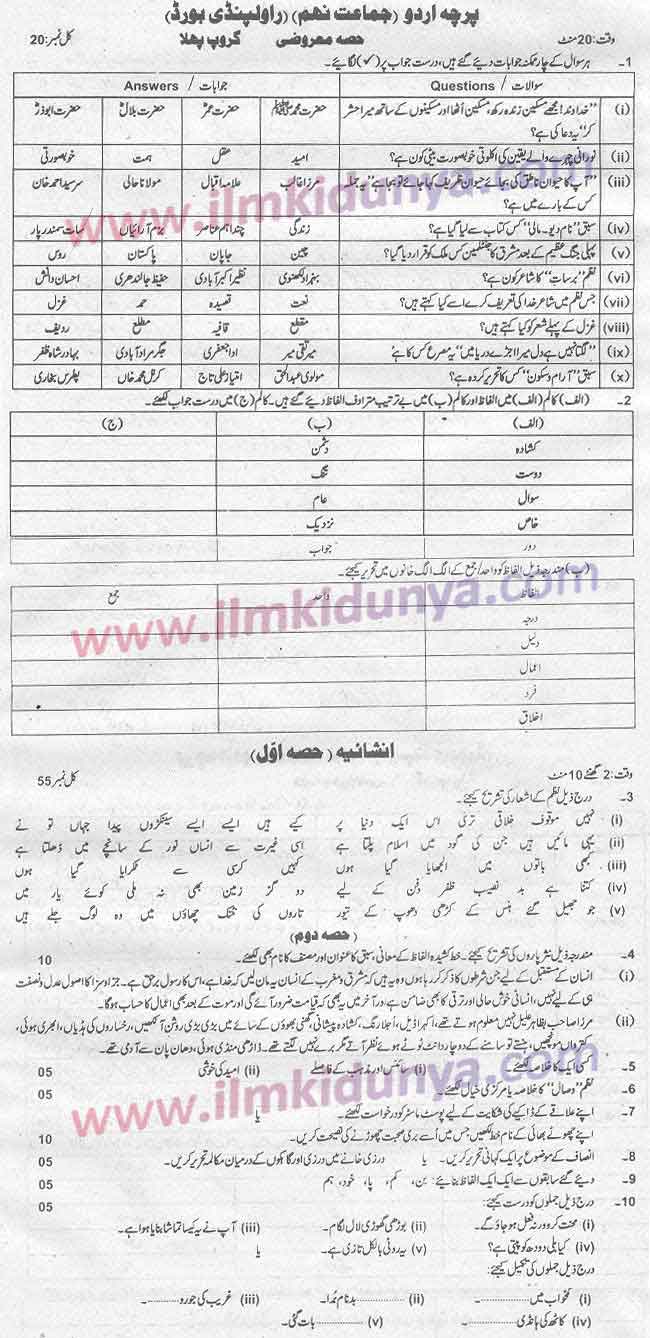 پرچہ اردو (جماعت نہم) (راولپنڈی بورڈ)
وقت: 20 منٹ حصہ معروضی گروپ پہلا کل نمبر: 20
1- ہر سوال کے چار ممکنہ جوابات دیئے گئے ہیں، درست جواب پر (✓) لگایئے۔
سوالات / Questions جوابات / Answers
(i) "خداوند! مجھے مسکین زندہ رکھ، مسکین اُٹھا اور مسکینوں کے ساتھ میرا حشر کر" یہ دعا کی ہے؟ حضرت محمد ﷺ حضرت عمرؓ حضرت بلالؓ حضرت ابوذرؓ
(ii) نورانی چہرے والے یقین کی اکلوتی خوبصورت بیٹی کون ہے؟ امید عقل ہمت خوبصورتی
(iii) "آپ کا حیوان ناطق کی بجائے حیوان ظریف کہا جائے تو بجا ہے" یہ جملہ کس کے بارے میں ہے؟ مرزا غالب علامہ اقبال مولانا حالی سرسید احمد خان
(iv) سبق "نام دیو۔ مالی" کس کتاب سے لیا گیا ہے؟ زندگی چند ہم عناصر بزم آرائیاں سات سمندر پار
(v) پہلی جنگ عظیم کے بعد مشرق کا جنٹلمین کس ملک کو قرار دیا گیا؟ چین جاپان پاکستان روس
(vi) نظم "برسات" کا شاعر کون ہے؟ بہزاد لکھنوی نظیر اکبر آبادی حفیظ جالندھری احسان دانش
(vii) جس نظم میں شاعر خدا کی تعریف کرے اسے کیا کہتے ہیں؟ نعت قصیدہ حمد غزل
(viii) غزل کے پہلے شعر کو کیا کہتے ہیں؟ مقطع قافیہ مطلع ردیف
(ix) "لگتا نہیں ہے دل میرا اجڑے دریا میں" یہ مصرع کس کا ہے؟ میر تقی میر ادا جعفری جگر مراد آبادی بہادر شاہ ظفر
(x) سبق "آرام و سکون" کس کا تحریر کردہ ہے؟ مولوی عبدالحق امتیاز علی تاج کرنل محمد خاں پطرس بخاری
2- (الف) کالم (الف) میں الفاظ اور کالم (ب) میں بے ترتیب مترادف الفاظ دیئے گئے ہیں۔ کالم (ج) میں درست جواب لکھئے۔
(الف) (ب) (ج)
کشادہ دشمن
دوست تنگ
سوال عام
خاص نزدیک
دور جواب
(ب) مندرجہ ذیل الفاظ کو واحد/جمع کے الگ الگ خانوں میں تحریر کیجئے۔
الفاظ واحد جمع
درجہ
دلیل
اعمال
فرد
اخلاق
انشائیہ (حصہ اوّل)
وقت: 2 گھنٹے 10 منٹ کل نمبر 55
3- درج ذیل نظم کے اشعار کی تشریح کیجئے۔
(i) نہیں موقوف خلاقی تری اس ایک دنیا پر کیے ہیں ایسے ایسے سینکڑوں پیدا جہاں تو نے
(ii) یہی مائیں ہیں جن کی گود میں اسلام پلتا ہے اسی غیرت سے انساں نور کے سانچے میں ڈھلتا ہے
(iii) کبھی باتوں میں الجھایا گیا ہوں کہیں کرسی سے ٹکرایا گیا ہوں
(iv) کتنا ہے بد نصیب ظفر دفن کے لیے دو گز زمین بھی نہ ملی کوئے یار میں
(v) جو جھیل گئے ہنس کے کڑی دھوپ کے تیور تاروں کی خنک چھاؤں میں وہ لوگ جلے ہیں
(حصہ دوم)
4- مندرجہ ذیل نثر پاروں کی تشریح کیجئے۔ خط کشیدہ الفاظ کے معانی، سبق کا عنوان اور مصنف کا نام بھی لکھئے۔ 10
(i) انسان کے مستقبل کے لیے جن شرطوں کا ذکر کر رہا ہوں وہ یہ ہیں کہ مشرق و مغرب کے انسان یہ مان لیں کہ خدا ہے، اس کا رسول برحق ہے۔ جزا و سزا کا اصول عدل و نصفت
ہی کے لیے نہیں، انسانی خوش حالی اور ترقی کا بھی ضامن ہے اور آخر میں یہ بھی کہ قیامت ضرور آئے گی اور موت کے بعد بھی اعمال کا حساب ہوگا۔
(ii) مرزا صاحب بظاہر علیل نہیں معلوم ہوتے تھے، اکہرا ڈیل، اُجلا رنگ، کشادہ پیشانی، گھنی بھوؤں کے سائے میں بڑی بڑی روشن آنکھیں، رخساروں کی ہڈیاں، ابھری ہوئی،
کتروان مونچھیں، ہنستے تو سامنے کے دو چار دانت ٹوٹے ہوئے نظر آتے مگر برے نہیں لگتے تھے۔ ڈاڑھی منڈی ہوئی، دھان پان سے آدمی تھے۔
5- کسی ایک کا خلاصہ لکھئے۔ (i) سائنس اور مذہب کے فاصلے (ii) امید کی خوشی 05
6- نظم "وصال" کا خلاصہ یا مرکزی خیال لکھئے۔ 05
7- اپنے علاقے کے ڈاکیے کی شکایت کے لیے پوسٹ ماسٹر کو درخواست لکھئے۔ یا
اپنے چھوٹے بھائی کے نام خط لکھیں جس میں اُسے بری صحبت چھوڑنے کی نصیحت کریں۔ 10
8- انصاف کے موضوع پر ایک کہانی تحریر کریں۔ یا درزی خانے میں درزی اور گاہکوں کے درمیان مکالمہ تحریر کریں۔ 05
9- دیئے گئے سابقوں سے ایک ایک الفاظ بنایئے: بن، کم، پا، خود، ہم 05
10- درج ذیل جملوں کو درست کیجئے: 05
(i) محنت کرو ورنہ فعل ہو جاؤ گے۔ (ii) بوڑھی گھوڑی لال لگام۔ (iii) آپ نے یہ کیسا تماشا بنایا ہوا ہے۔
(iv) کیا بلی دودھ کو پیتی ہے؟ (v) یہ روٹی بالکل تازی ہے۔ یا
درج ذیل جملوں کی تکمیل کیجئے:
(i) کمخواب میں ............۔ (ii) ............ بدنام بُرا۔ (iii) غریب کی جورو ............۔
(iv) کاٹھ کی ہانڈی ............۔ (v) ............ بات گئی۔
www.ilmkidunya.com
www.ilmkidunya.com
www.ilmkidunya.com